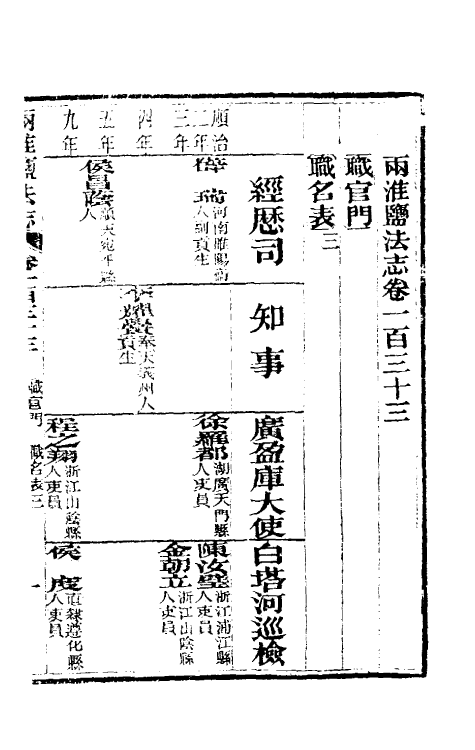 兩淮鹽法志卷一百三十三
職官門
職名表三
經歷司
知事
廣盈庫大使
白塔河巡檢
順治
二年
瑞河南睢陽衛人副貢生
徐羅都湖廣天門縣人吏員
陳汝璧浙江浦江縣人吏員
三年
金朝立浙江山陰縣人吏員
四年
奉天義州人貢生
五年
侯昌陰順天宛平縣人
九年
程之翔浙江山陰縣人吏員
侯度直隸遵化縣人吏員
兩淮鹽法志
卷一百三十三
職官門
職名表三
一